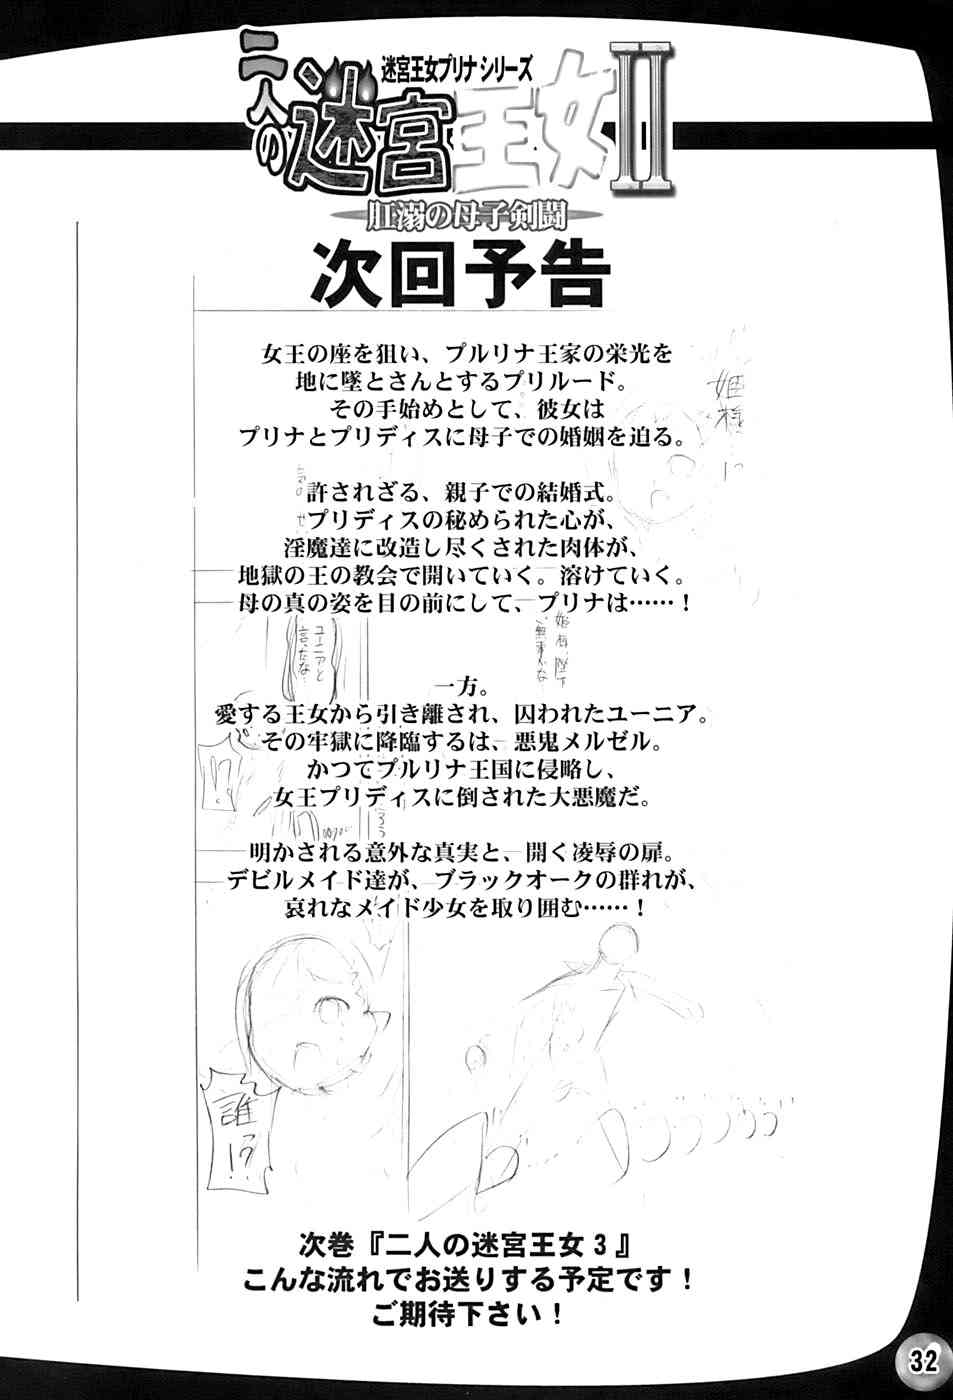 迷宮王女プリナシリーズ
二人の迷宮王女II
肛溺の母子剣闘
次回予告
女王の座を狙い、プルリナ王家の栄光を
地に墜とさんとするプリルード。
その手始めとして、彼女は
プリナとプリディスに母子での婚姻を迫る。
許されざる、親子での結婚式。
プリディスの秘められた心が、
淫魔達に改造し尽くされた肉体が、
地獄の王の教会で開いていく。溶けていく。
母の真の姿を目の前にして、プリナは……！
一方。
愛する王女から引き離され、囚われたユーニア。
その牢獄に降臨するは、悪鬼メルゼル。
かつてプルリナ王国に侵略し、
女王プリディスに倒された大悪魔だ。
明かされる意外な真実と、開く凌辱の扉。
デビルメイド達が、ブラックオークの群れが、
哀れなメイド少女を取り囲む……！
姫様
!?
ユーニアと
言ったな…
!?
誰!?
次巻『二人の迷宮王女３』
こんな流れでお送りする予定です！
ご期待下さい！
32